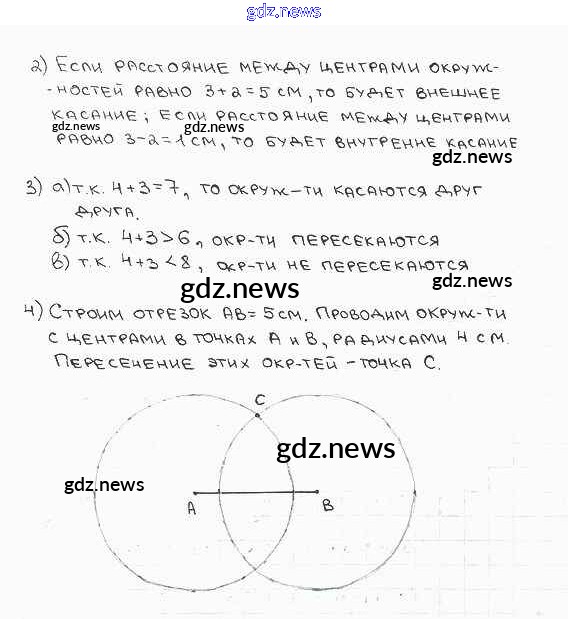 gdz.news
2) Если расстояние между центрами окруж-
-ностей равно 3+2=5 см, то будет внешнее
касание; если расстояние между центрами
gdz.news
равно 3-2=1 см, то будет внутренне касание
gdz.news
3) а) т.к. 4+3=7, то окруж-ти касаются друг
друга.
б) т.к. 4+3>6, окр-ти пересекаются
в) т.к. 4+3<8, окр-ти не пересекаются
gdz.news
gdz.news
4) Строим отрезок АВ=5 см. Проводим окруж-ти
с центрами в точках А и В, радиусами 4 см.
Пересечение этих окр-тей - точка С.
С
gdz.news
gdz.news
А В